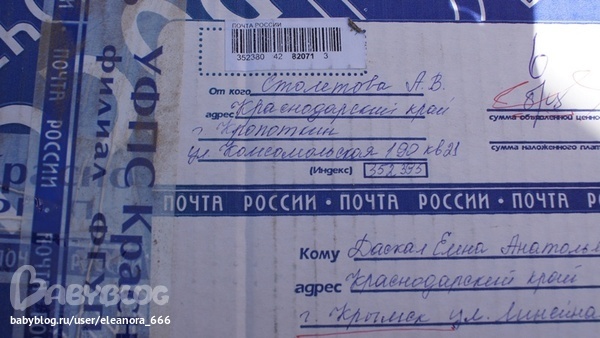 ПОЧТА РОССИИ
352380 42 82071 3
От кого Столетова А.В.
адрес Краснодарский край
г. Кропоткин
ул Комсомольская 190 кв 21
(Индекс) 352375
сумма объявленной ценно
сумма наложенного плат
6
ПОЧТА РОССИИ • ПОЧТА РОССИИ • ПОЧТА
Кому Даскал Елена Анатоль
адрес Краснодарский край
г. Крымск ул.
ПОЧТА РОССИИ
УФПС Крас
филиал ФГУП
BABYBLOG
babyblog.ru/user/eleanora_666